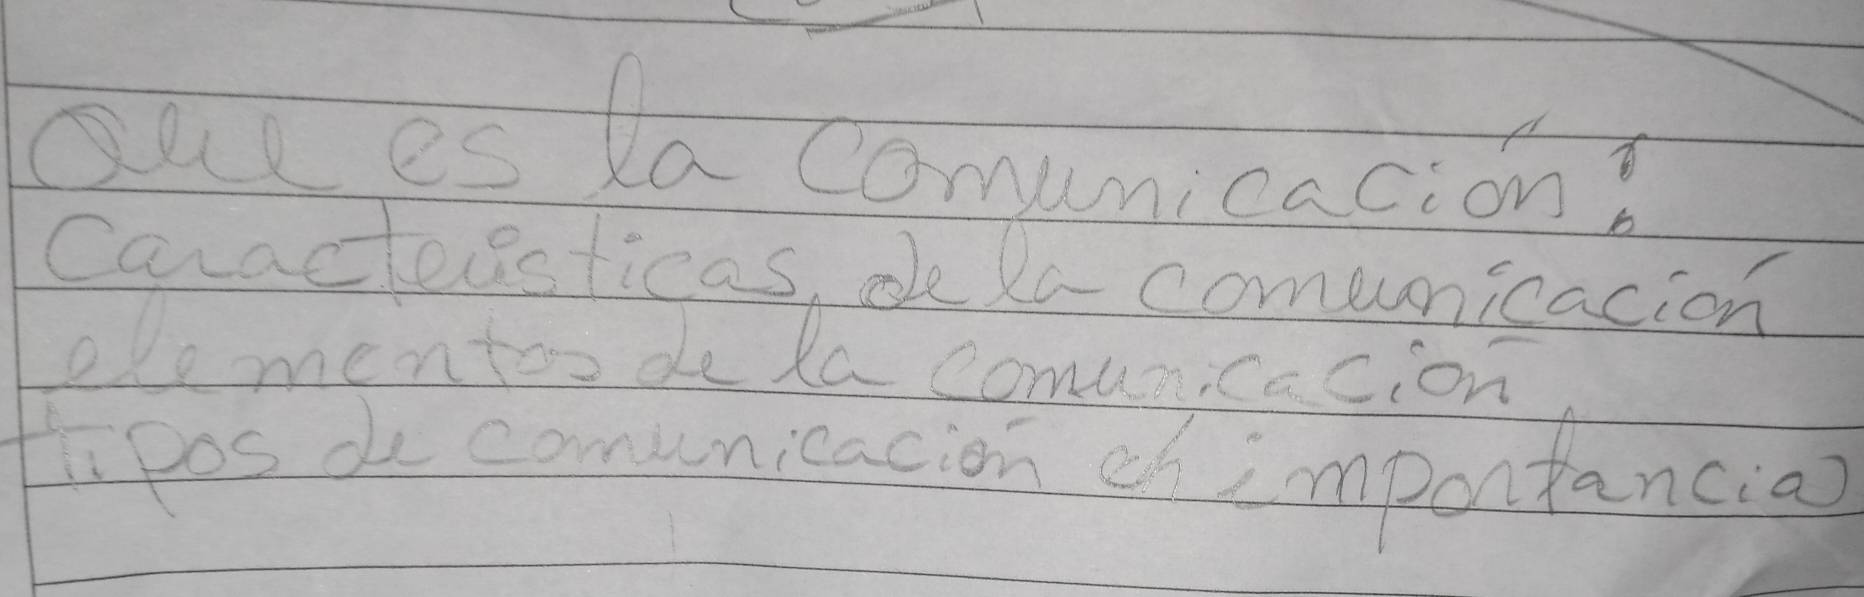 Que es la comunicación:
Características de la comunicación
elementos de la comunicación
tipos de comunicación eh importancia